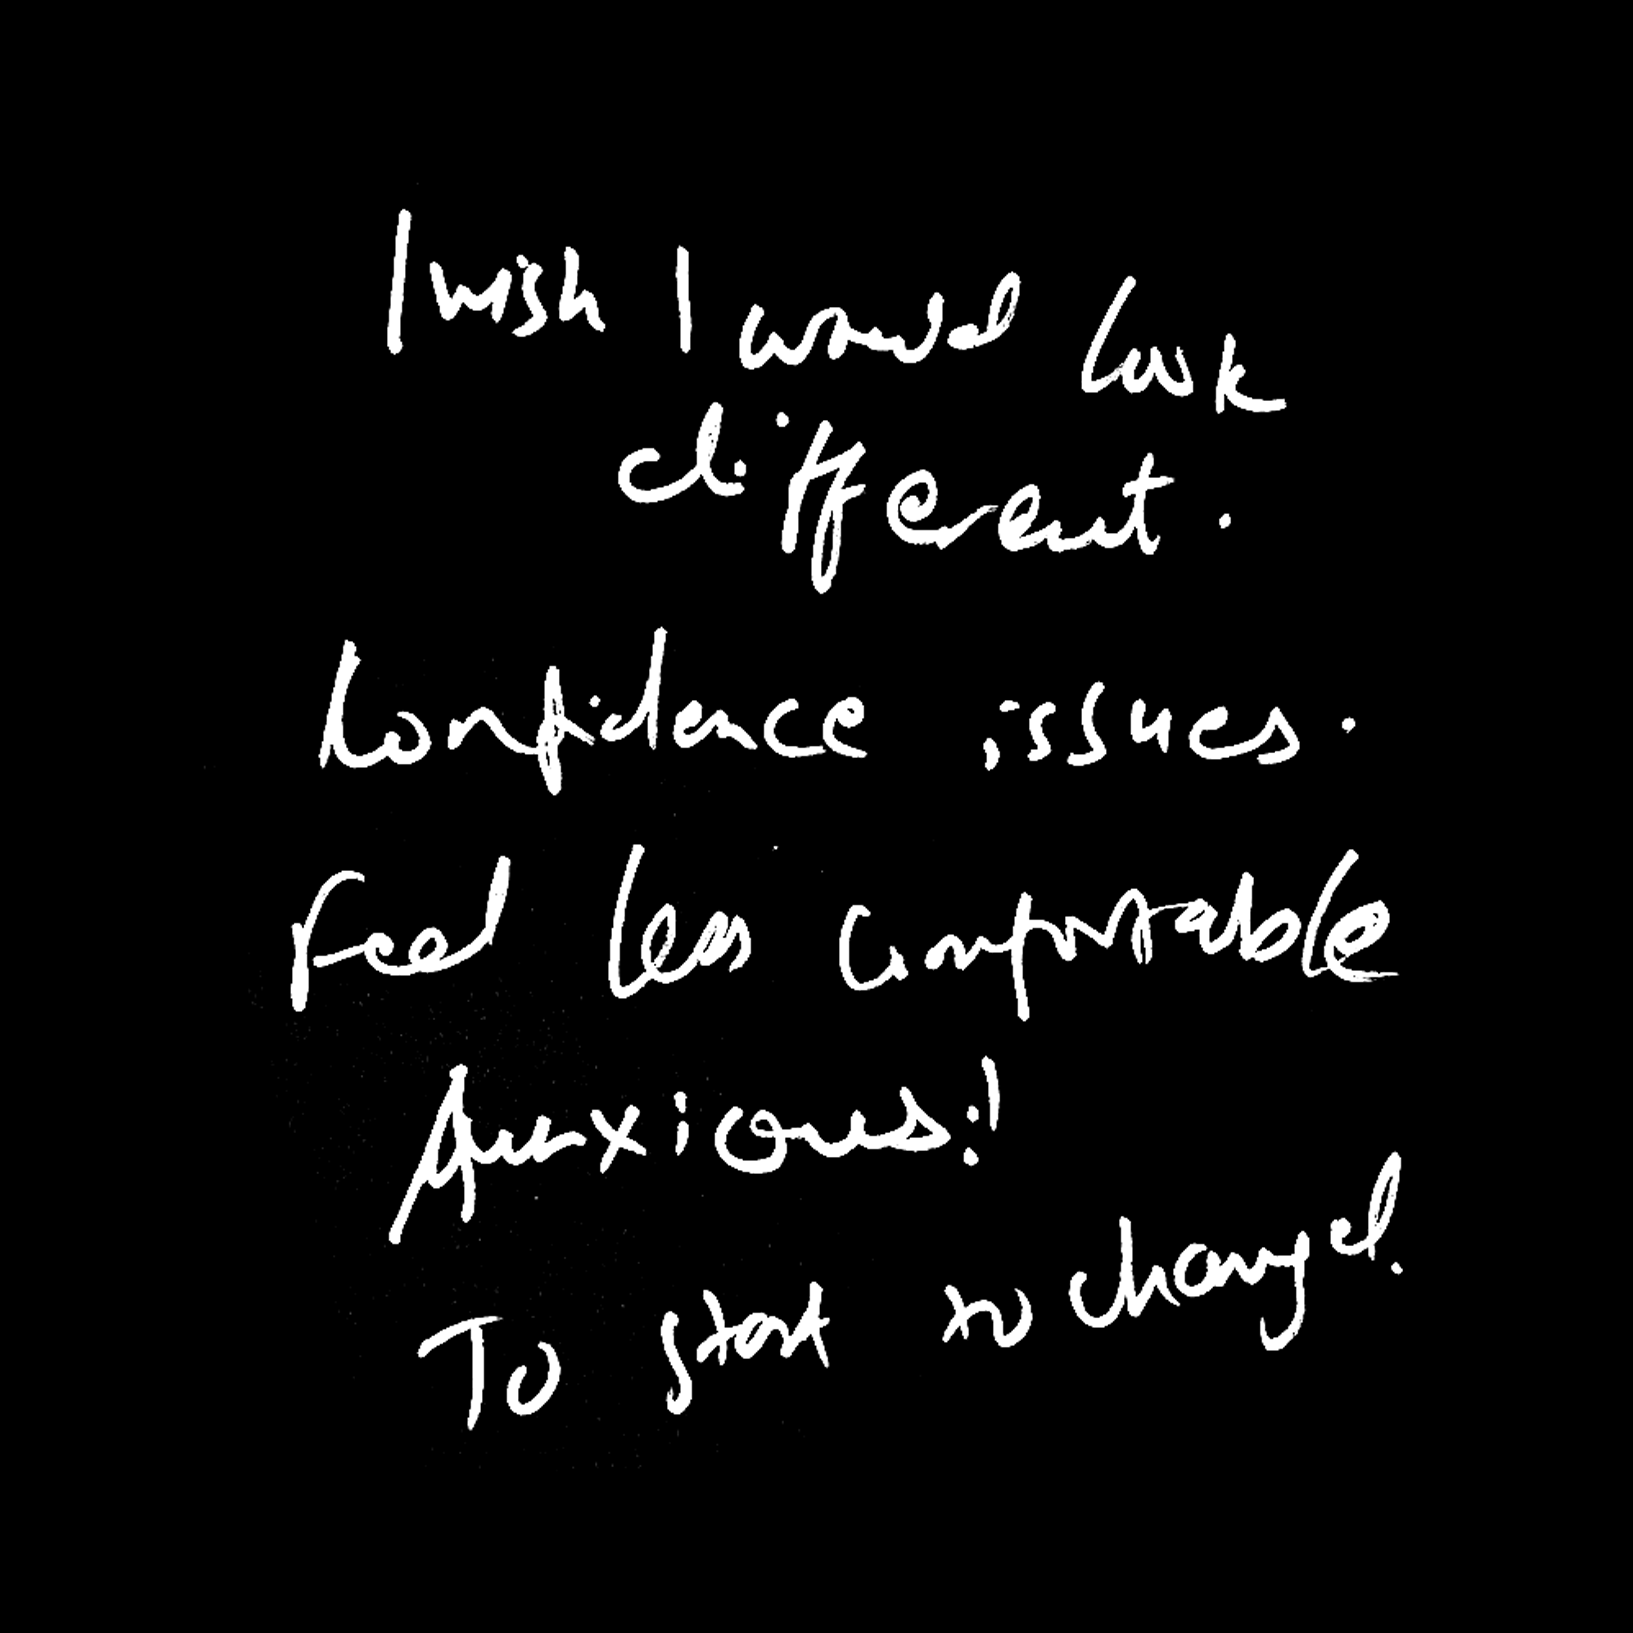 I wish I would look
different.
Confidence issues.
Feel less comfortable
Anxious!
To start to change!